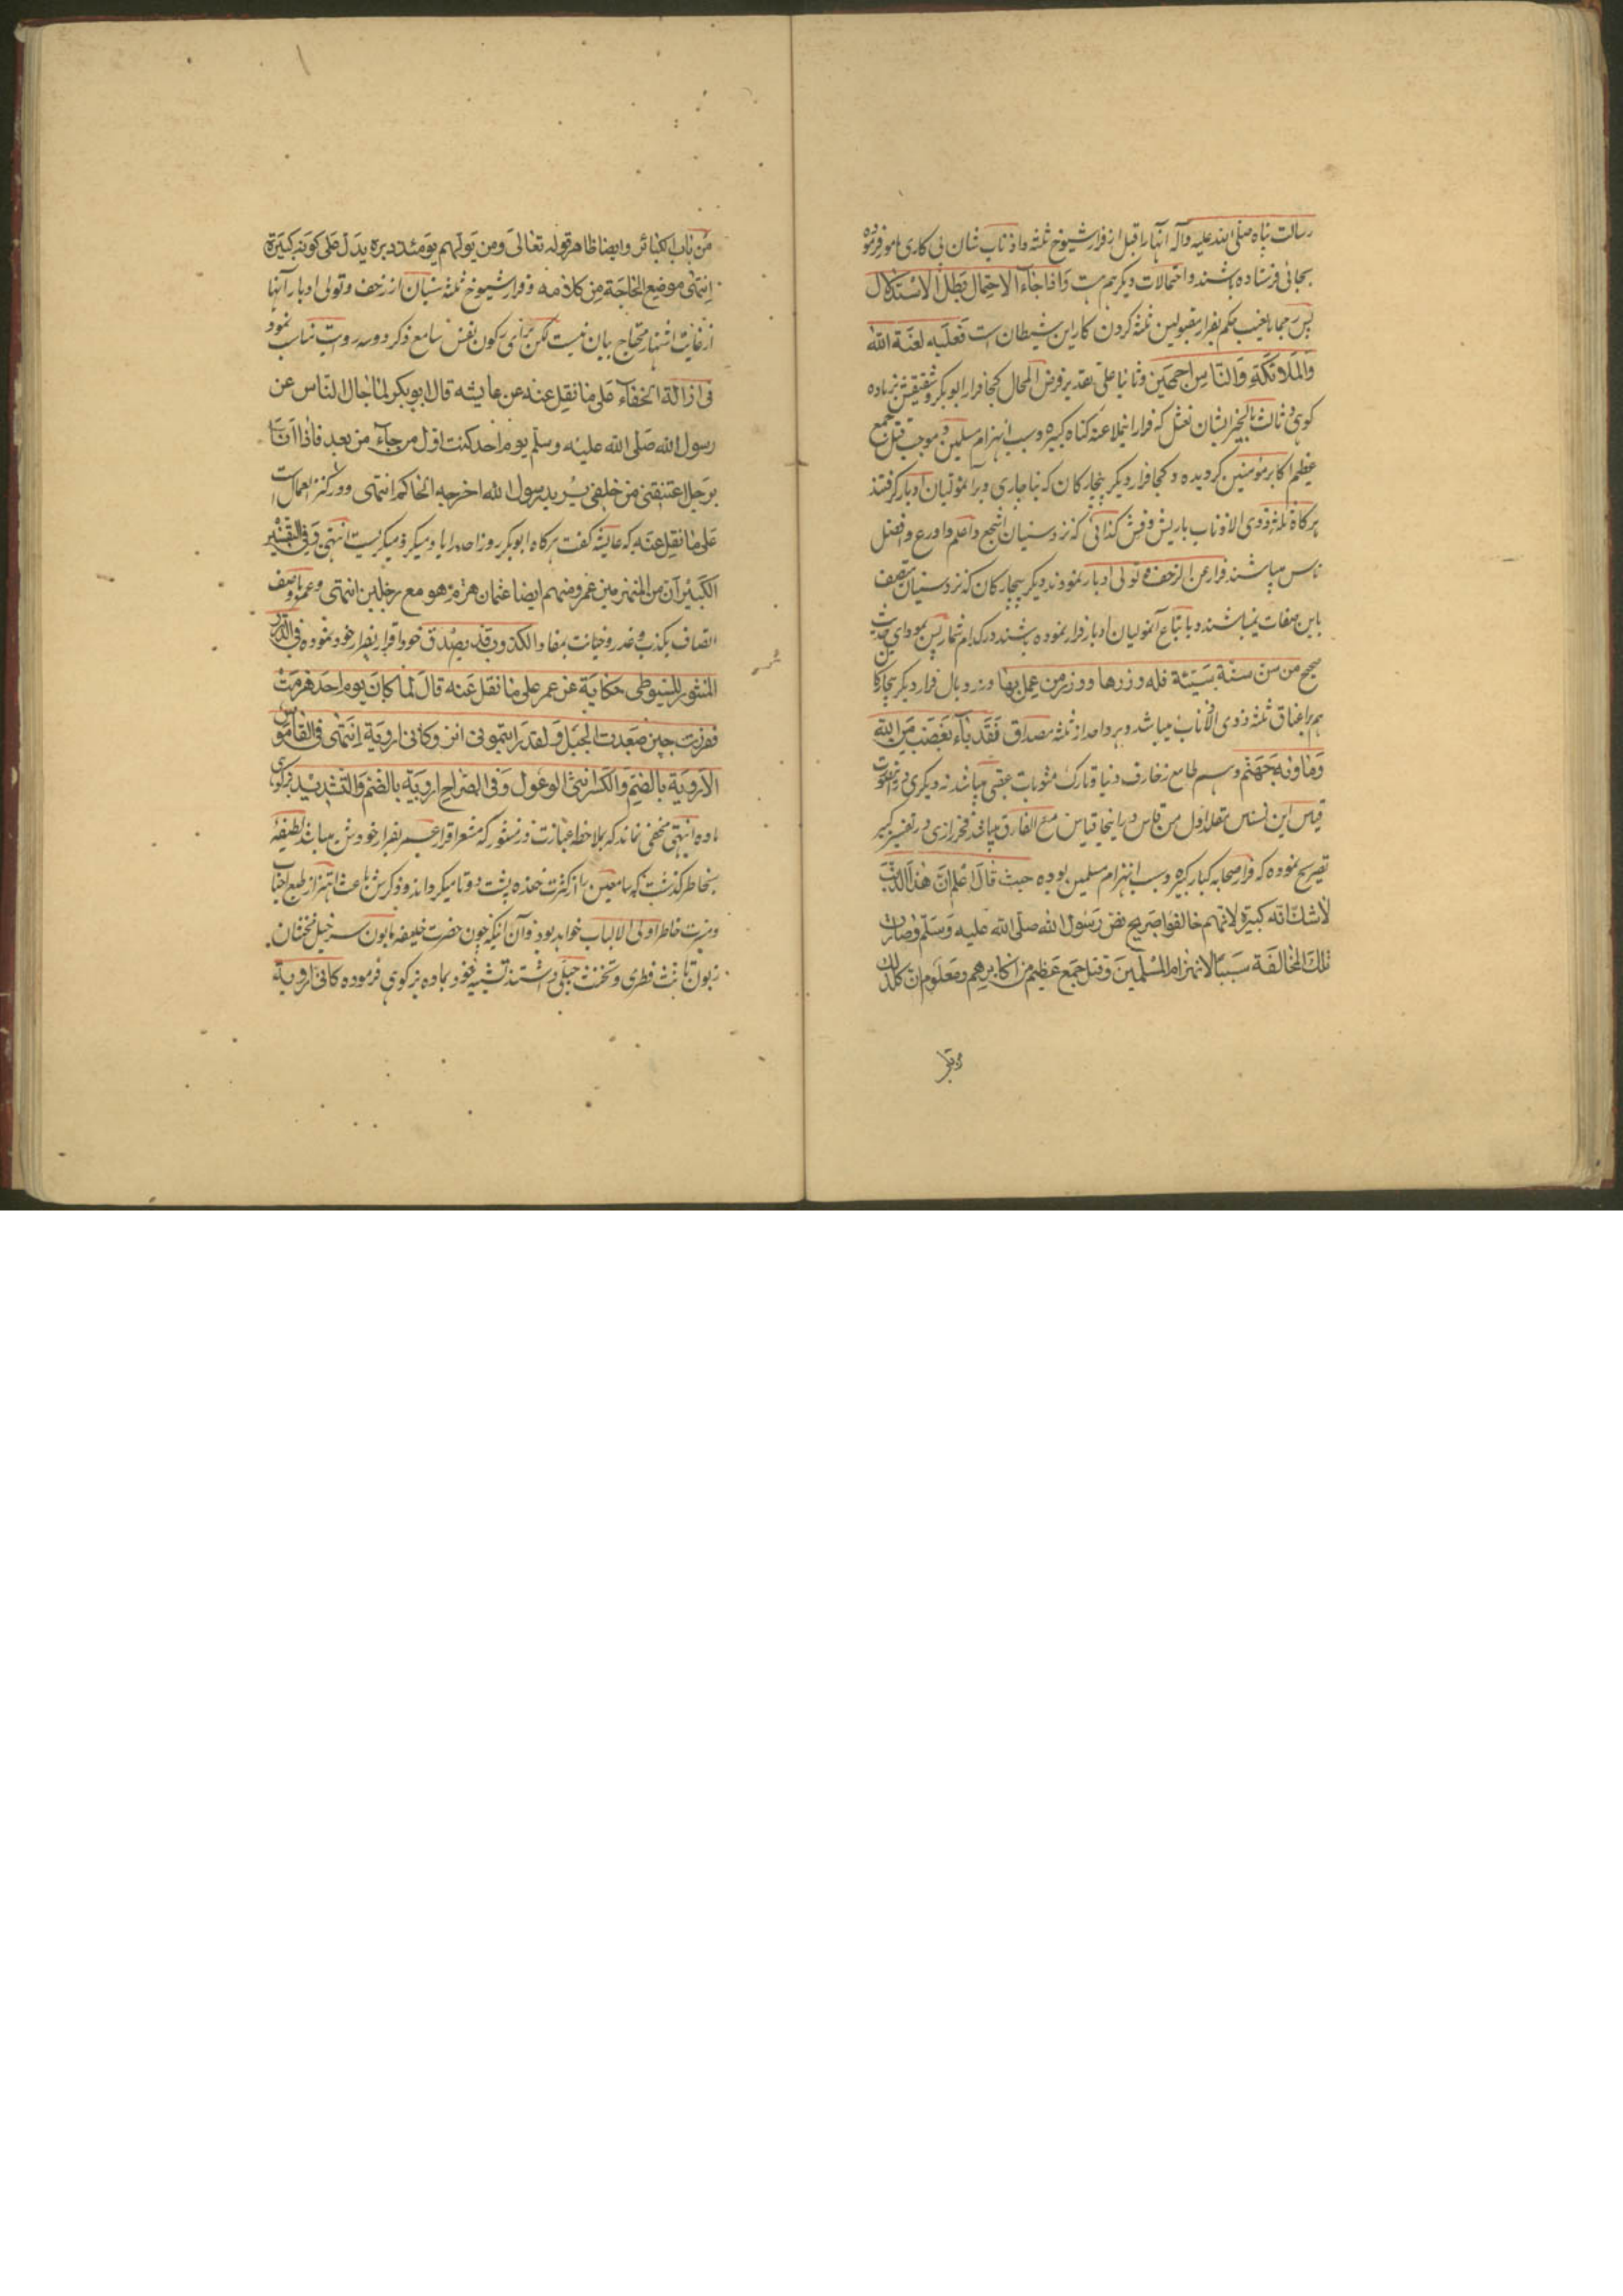 رسالت پناه صلی الله علیه وآله آنها را قبل از فرار شیوخ ثلثه واذناب شان بی کاری مامور فرموده
بجائی فرستاده باشند واحتمالات دیگر هم هست وَاذا جَاءَ الاحتِمال بَطَلَ الاسْتِدلال
پس رجما بالغیب حکم بفرار مقبولین ثلثه کردن کار این شیطان است فَعَلَیه لَعْنَة الله
وَالمَلائکَةِ وَالنّاسِ اجمعَین وثانیا علی تقدیر فرض المحال کجا فرار ابوبکر وشفیقش بز ماده
کوهی وثالث بالخیر ایشان نعثل که فرار اینملاعنه کناه کبیره وسبب انهزام مسلمین وموجب قتل جمع
عظیم اکابر مومنین کردیده وکجا فرار دیگر بیچارکان که بناچاری وبر اثر متولیان ادبار کرفتند
هر کاه ثلثه ذوی الاذناب باریش وفش کذائی که نزد سنیان اشجع واعلم واورع وافضل
ناس میباشند فرار عن الزحف وتولی ادبار نمودند دیگر بیچارکان که نزد سنیان متصف
باین صفات نمیباشند وباتباع آنمولیان ادبار فرار نموده باشند درکدام شمار پس بمودای حدیث
صحیح من سنّ سنّة سَیّئة فله وِزرها ووزر من عمل بها وزر ووبال فرار دیگر بیچارکان
هم بر اعناق ثلثه ذوی الاذناب میباشد وهر واحد از ثلثه مصداق فَقَد بَاءَ بِغَضَبٍ مِنَ الله
وَمَاوٰیه جَهَنّم وسهم طامع زخارف دنیا وتارک مثوبات عقبی میباشد نه دیگری
قیاس این نسناس مقلد اول من قاس در اینجا قیاس مع الفارق میباشد فخر رازی در تفسیر کبیر
تصریح نموده که فرار صحابه کبار کبیره وسبب انهزام مسلمین بوده حیث قالَ اعْلم انّ هٰذا الذّنب
لاشك انّه کبیرة لانّهم خالفوا صَریح نصّ رَسُول الله صلّی الله علیه وَسَلّم وصارَت
تلكَ المُخالَفَة سَبَبًا لانهزام المُسلمینَ وقتل جمع عَظیم من اکابرهم ومَعلوم ان کل ذلك
من باب الکبائر وایضا ظاهر قوله تعالیٰ وَمن یَولّهم یَومئذ دبره یدلّ علی کونه کَبیرَة
انتهی موضع الحاجَة مِن کلامه وفرار شیوخ ثلثه سنیان از زحف وتولی ادبار آنها
از غایت اشتهار محتاج بیان نیست لکن برای رکون نفس سامع ذکر دو سه روایت مناسب نمود
فی ازالة الخفاء عَلی ما نقل عنه عن عایشه قال ابوبکر لمّا جال النّاس عن
رسول الله صَلی الله علیه وسلّم یوم احد کنت اوّل من جاء من بعد فاذا انا
برَجل اعتنقنی من خلفی یرید رسول الله اخرجه الحاکم انتهی ودر کنز العمال است
عَلی ما نقل عنَه که عایشه گفت هر کاه ابوبکر روز احد را یاد میکرد میکریست انتهی وَفی التفسیر
الکَبیر انّ من المنهزمین عمر ومنهم ایضا عثمان هزم هو مع رجلین انتهی وعمر باوصف
اتصاف بکذب وغدر وخیانت بمفاد الکذوب قد یصدق خود اقرار بفرار خود نموده فی الدّر
المنثور للسّیوطی حکایَة عن عمر علی ما نقل عَنه قال لمّا کانَ یوم احد هزمت
ففررت حین صَعدت الجَبل وَلقد رایتمونی انزو کانّی اروِیَة انتهی فی القاموس
الاُروِیَة بالضّم وَالکسر انثی الوعول وَفی الصّراح ارویَة بالضّم وَالتّشدید بزکوهی
ماده انتهی مخفی نماند که بملاحظه عبارت در منثور که مشعر اقرار عمر بفرار خودش میباشد لطیفه
بخاطر گذشت که سامعین را از کثرت خنده پشت دوتا میکرداند وذکرش باعث اهتزاز طبع احباب
ومسرت خاطر اولی الالباب خواهد بود وآن اینکه چون حضرت خلیفه مابون سرخیل مخنثان
زبون تانیث فطری وتخنث جبلی داشتند تشبیه خود بماده بز کوهی فرموده کانّی ارویة